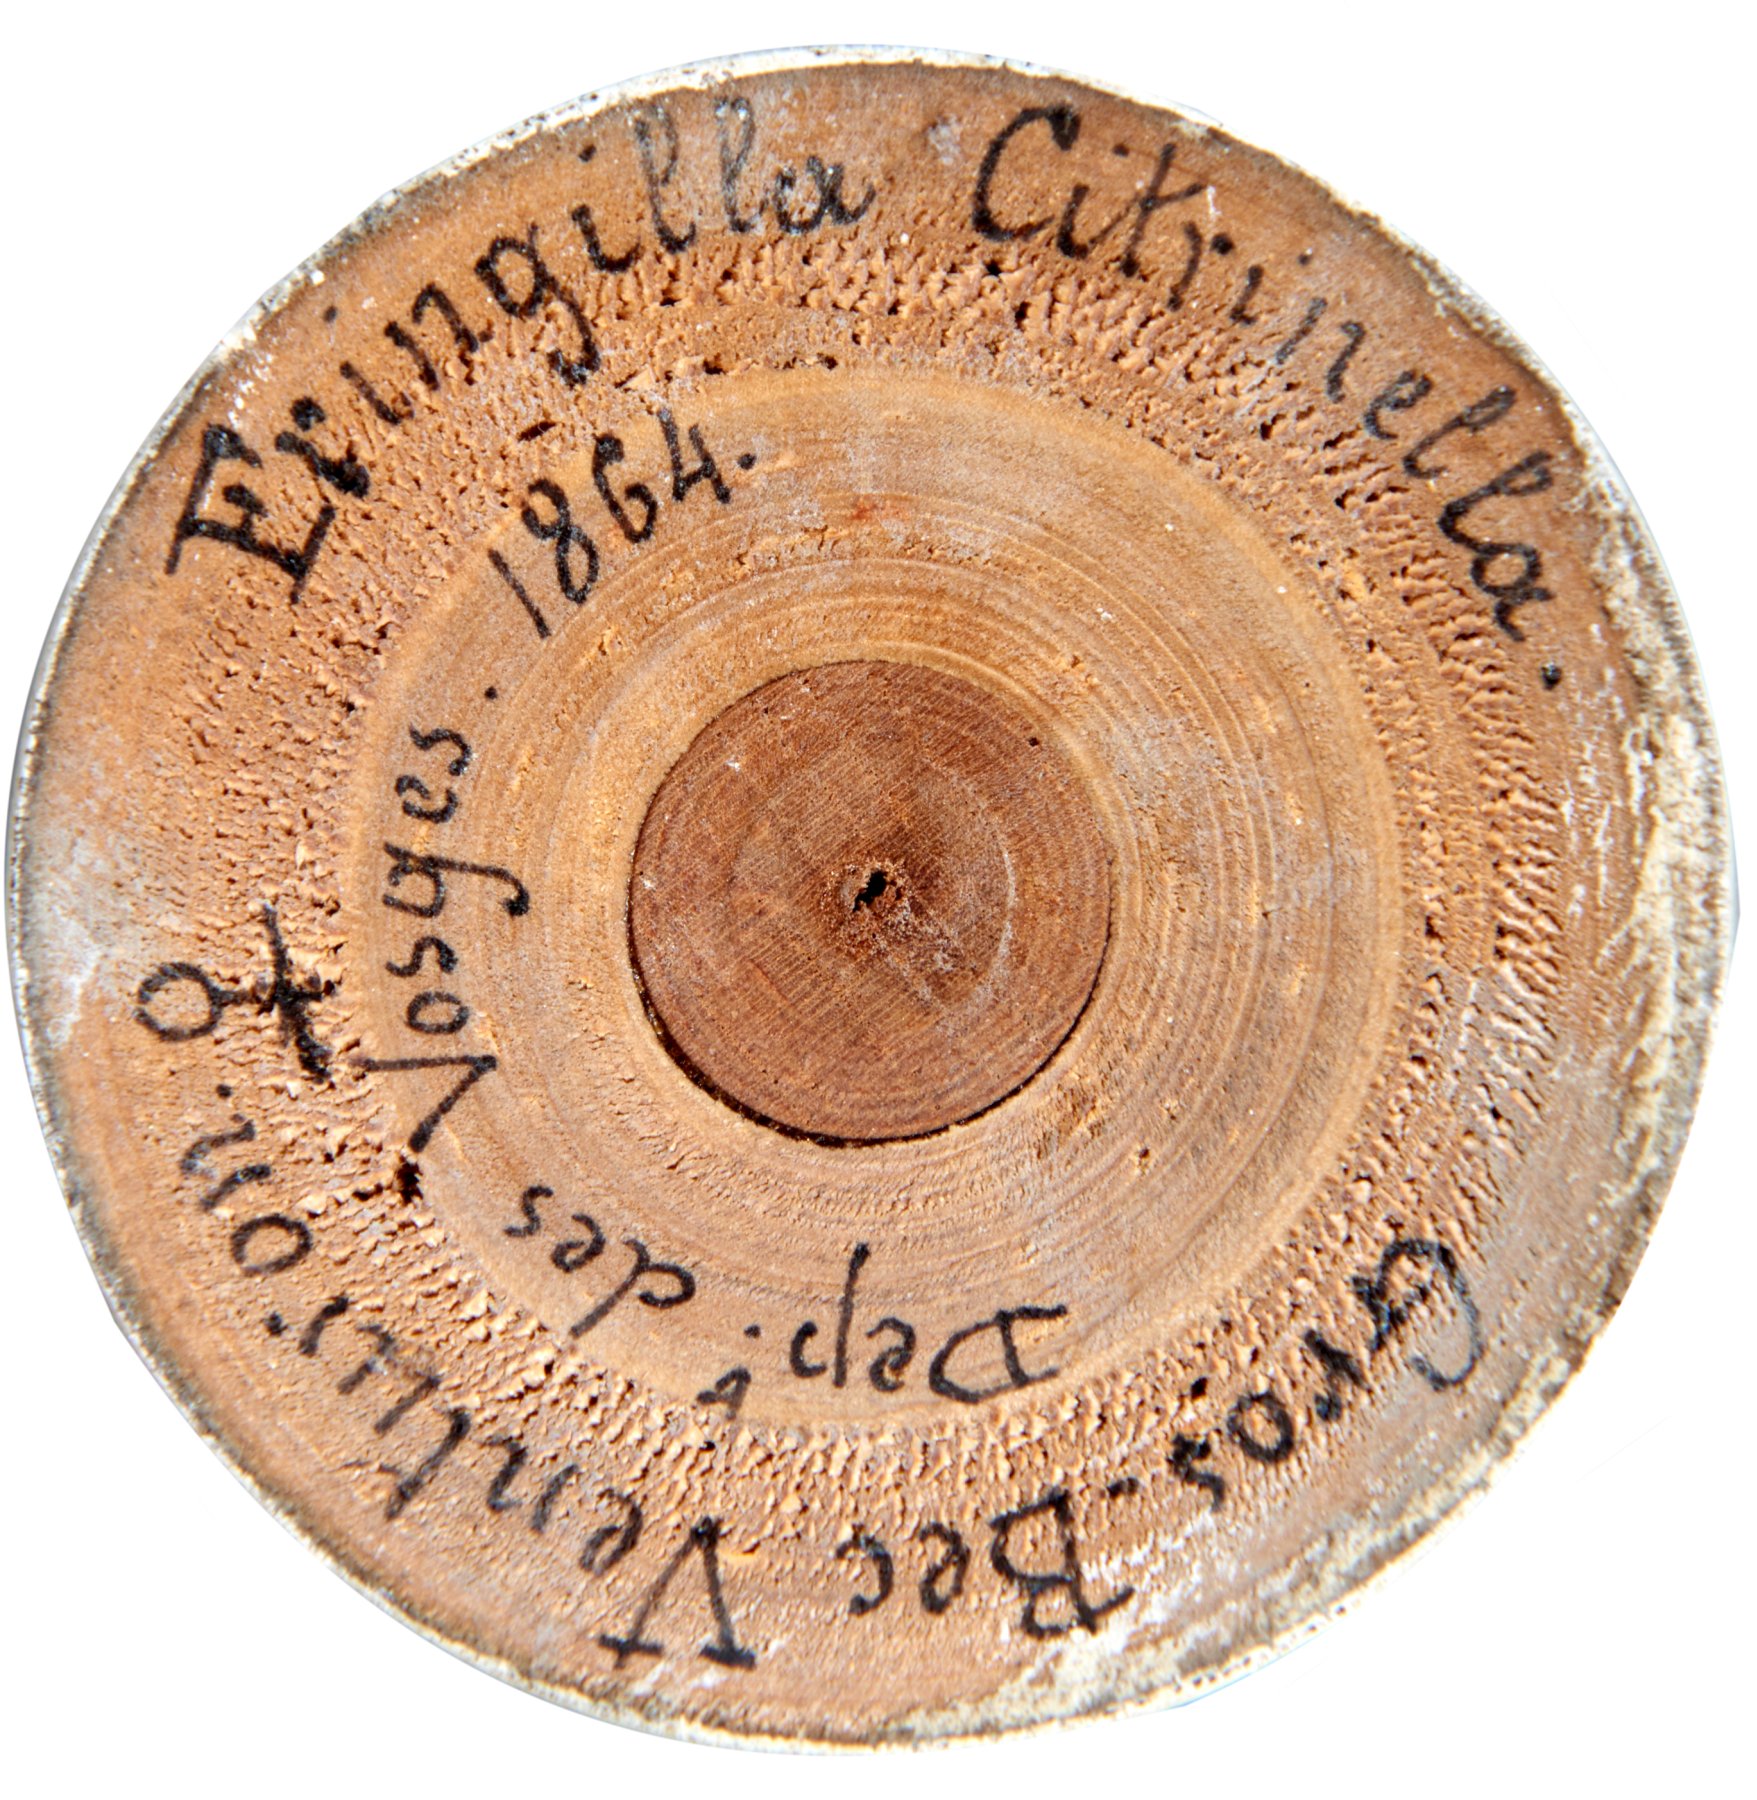 Fringilla Citrinella.
Gros-Bec Venturon. ♀
Dep.t des Vosges. 1864.